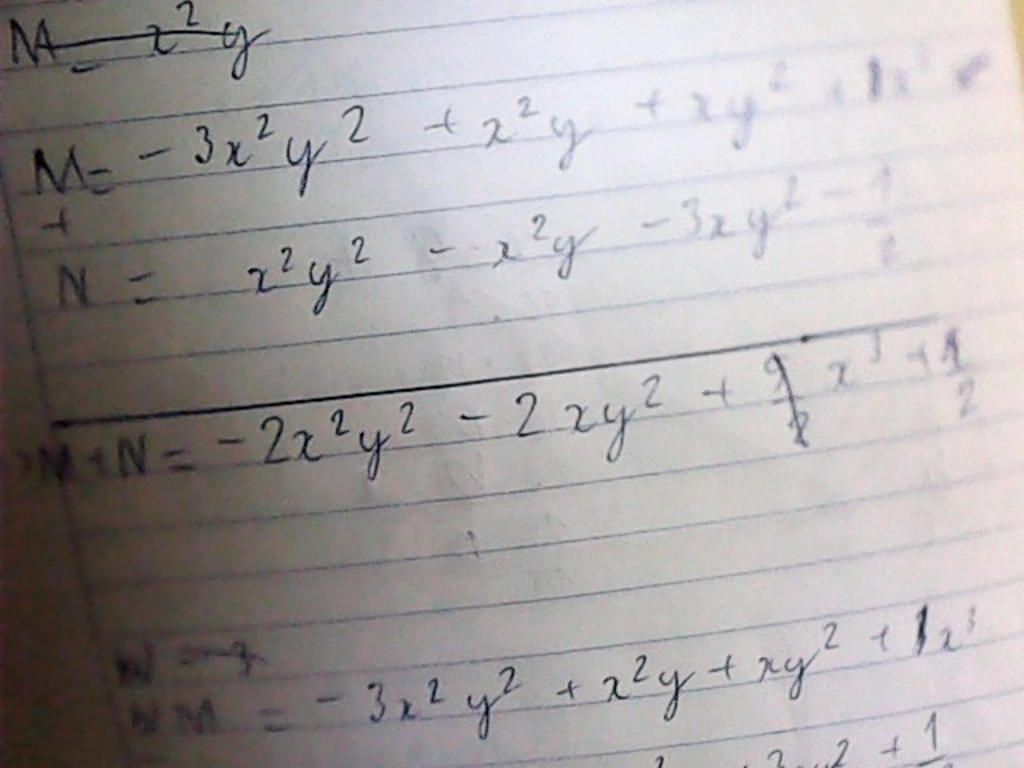 M = x²y
M = - 3x²y² + x²y + xy² + 1x³
+
N = x²y² - x²y - 3xy² - 1/2
M + N = - 2x²y² - 2xy² + x³ + 1/2
M = - 3x²y² + x²y + xy² + 1x³